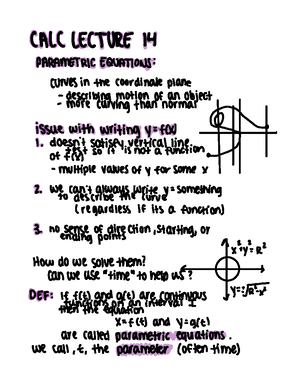 CALC LECTURE 14
PARAMETRIC EQUATIONS:
curves in the coordinate plane
- describing motion of an object
- more curving than normal
issue with writing y=f(x)
1. doesn't satisfy vertical line
test so it is not a function
of f(x)
- multiple values of y for some x
2. we can't always write y=something
to describe the curve
(regardless if its a function)
3. no sense of direction, starting, or
ending points
x²+y²=R²
How do we solve them?
can we use "time" to help us?
y=√R²-x²
DEF: if f(t) and g(t) are continuous
functions on an interval I
then the equation
x=f(t) and y=g(t)
are called parametric equations.
we call, t, the parameter (often time)